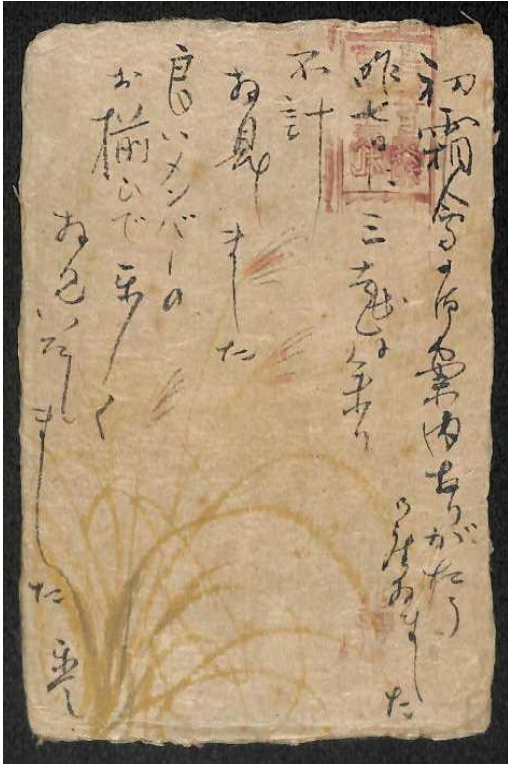 初霜会の御案内ありがたう
御座ゐました
昨七日、三越に参り
不計
お見
ました
良いメンバーの
お揃ひで楽しく
お見いたし
ました